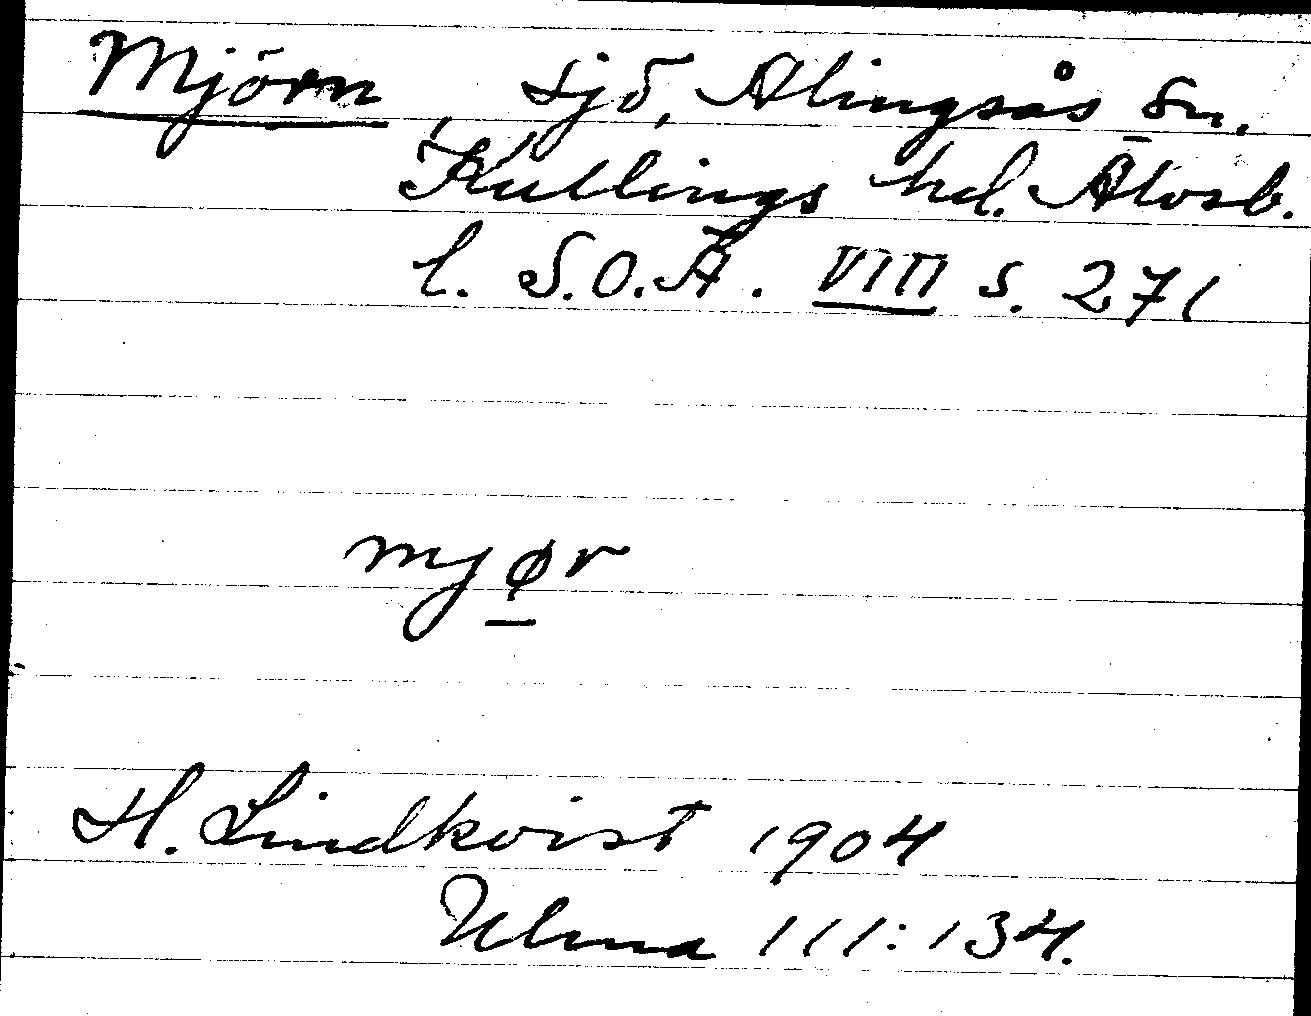 Mjörn sjö, Alingsås sn.
Kullings hd. Älvsb.
l. S.O.Ä. VIII s. 271
mjør
H. Lindkvist 1904
Ulma 111:134.